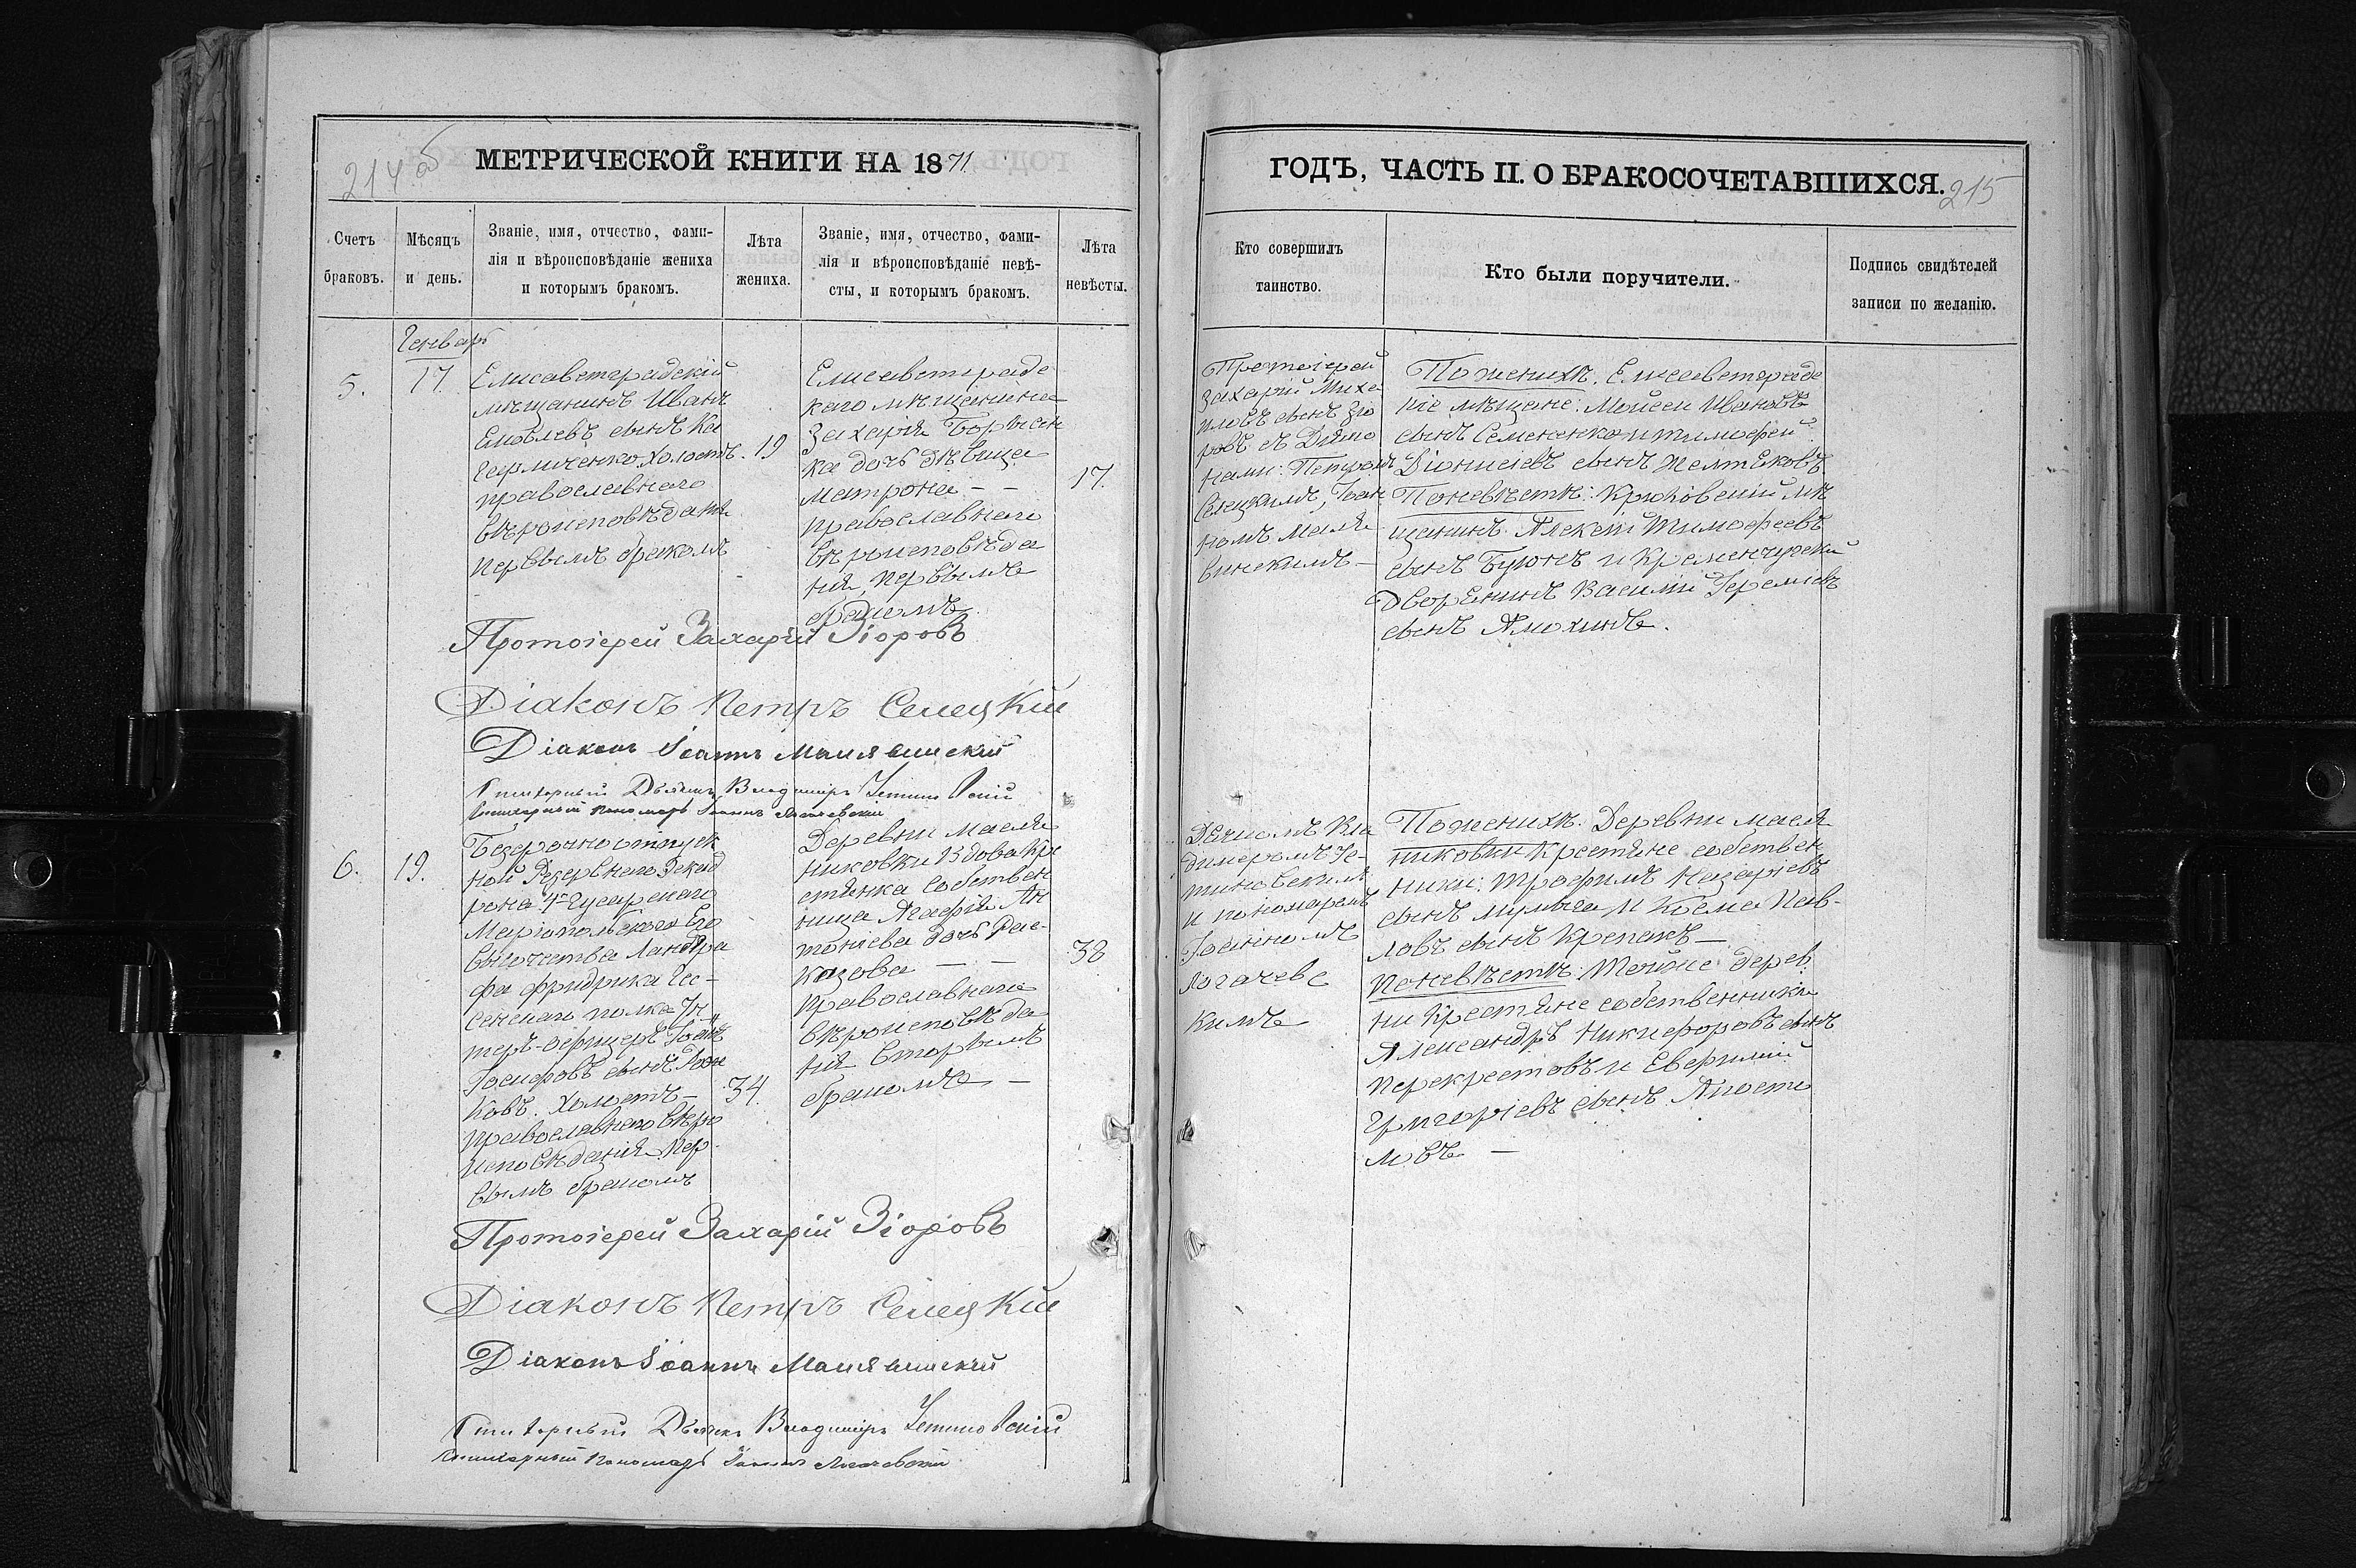 214 об
МЕТРИЧЕСКОЙ КНИГИ НА 1871.
Счетъ браковъ.
Мѣсяцъ и день.
Званіе, имя, отчество, фами-
лія и вѣроисповѣданіе жениха
и которымъ бракомъ.
Лѣта жениха.
Званіе, имя, отчество, фами-
лія и вѣроисповѣданіе невѣ-
сты, и которымъ бракомъ.
Лѣта невѣсты.
Генварь
5.
17.
Елисаветградскій
мѣщанинъ Иванъ
сынъ Ка
Холостъ.
православнаго
вѣроисповѣданія
первымъ бракомъ
19
Елисаветградс
каго мѣщанина
Захарія Борисен
ка дочь дѣвица
Матрона — —
православнаго
вѣроисповѣда
нія, первымъ
бракомъ
17.
Протоіерей Захарій Зіоровъ
Діаконъ Петръ Селецкій
Діаконъ Іоаннъ Малявинскій
Владиміръ
Пономарь Іоаннъ Логачевскій
6.
19.
Безсрочноотпуск
ной Резервнаго Эскад
рона 4го Гусарскаго
Маріупольскаго Его
Высочества Ландгра
фа Фридриха Гес-
сенскаго полка Ун
теръ-офицеръ Іоаннъ
Іосифовъ сынъ
ковъ. Холостъ —
православнаго вѣро
исповѣданія Пер
вымъ бракомъ
34.
Деревни Масля
никовки Вдова Кре
стьянка собствен
ница Агафія Ан
тоніева дочь Рас-
казова — —
православнаго
вѣроисповѣда
нія Вторымъ
бракомъ —
38
Протоіерей Захарій Зіоровъ
Діаконъ Петръ Селецкій
Діаконъ Іоаннъ Малявинскій
Владиміръ
Пономарь Іоаннъ Логачевскій
ГОДЪ, ЧАСТЬ II. О БРАКОСОЧЕТАВШИХСЯ.
215
Кто совершилъ таинство.
Кто были поручители.
Подпись свидѣтелей
записи по желанію.
Протоіерей
Захарій Миха
иловъ сынъ Зіо
ровъ съ Діако
нами: Петромъ
Селецкимъ, Іоан
номъ Маля
винскимъ —
По женихѣ: Елисаветградс
кіе мѣщане: Моисей Ивановъ
сынъ Семененко и Тимофей
Діонисіевъ сынъ Желтяковъ
По невѣстѣ: Крюковскій мѣ
щанинъ Алексѣй Тимофеевъ
сынъ и Кременчугскій
Дворянинъ Василій Іереміевъ
сынъ
Дьякомъ Вла
димеромъ Ус-
тиновскимъ
и пономаремъ
Іоанномъ
Логачевс
кимъ
По женихѣ: Деревни Масля
никовки Крестьяне собствен
ники: Трофимъ Назаріевъ
сынъ и Косма Пав-
ловъ сынъ Крепакъ —
По невѣстѣ: Тойже дерев
ни Крестьяне собственники
Александръ Никифоровъ сынъ
Перекрестовъ и Евфимій
Григоріевъ сынъ Апосто
ловъ —